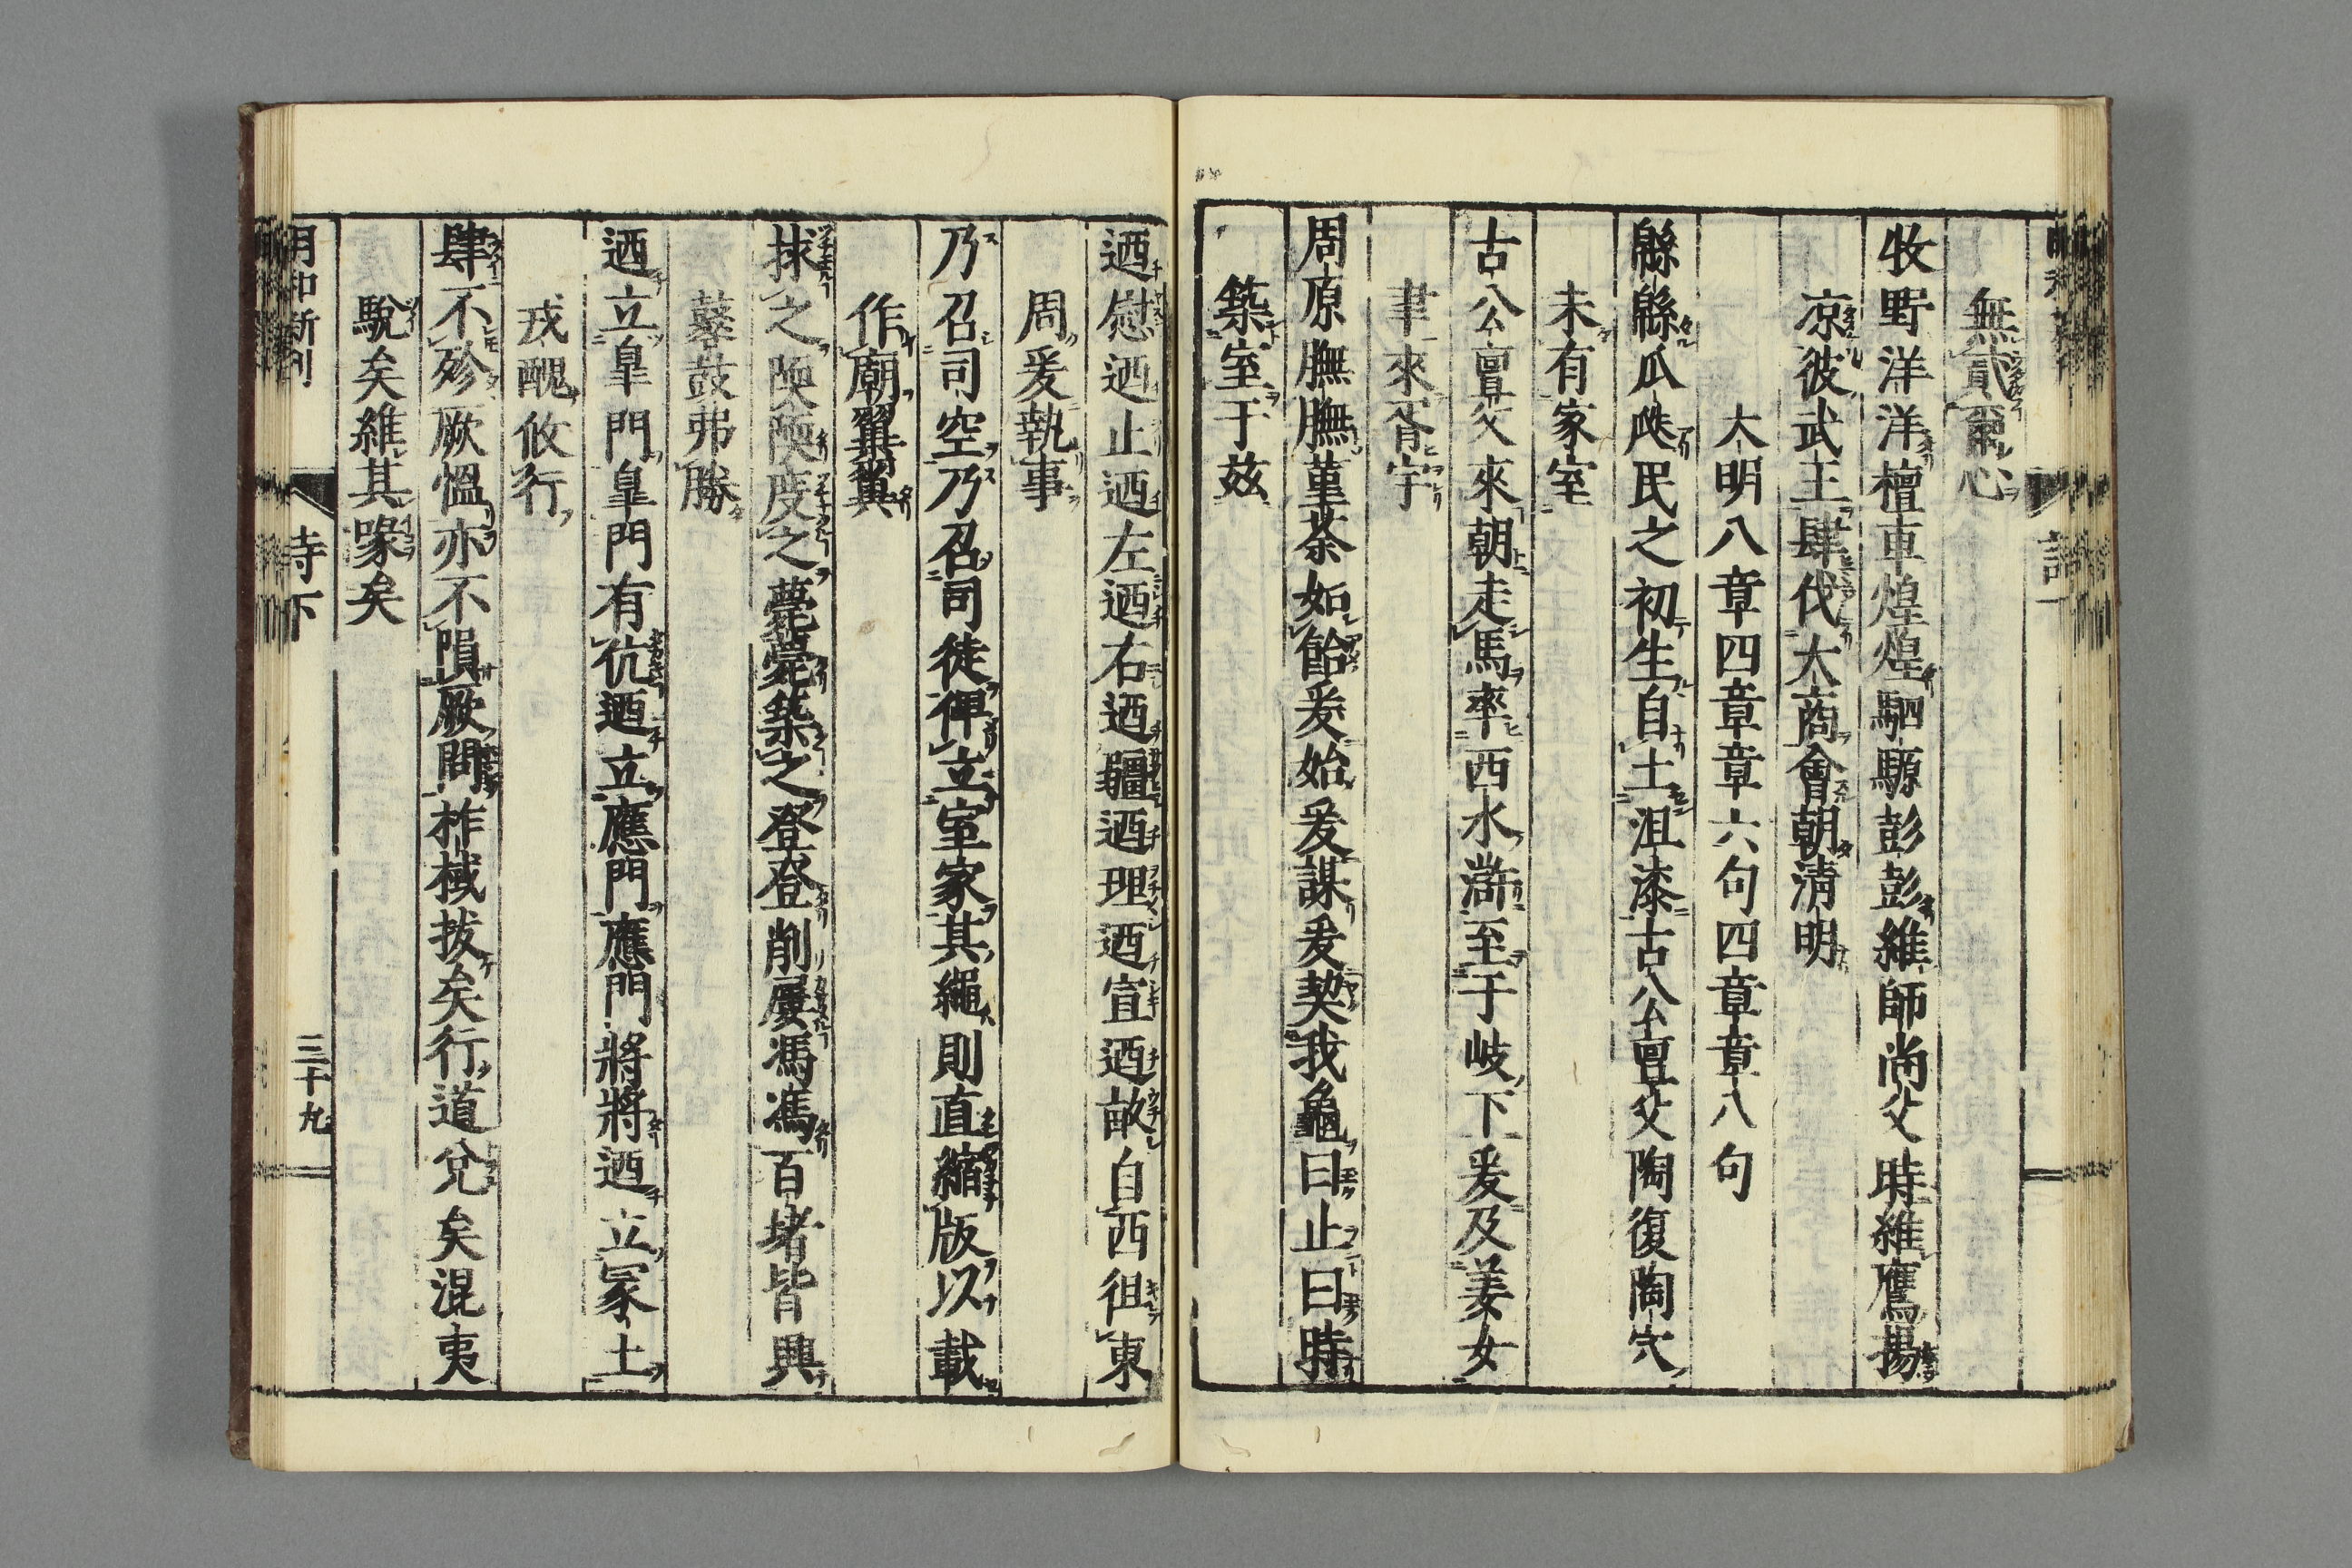 無貳爾心
牧野洋洋檀車煌煌駟騵彭彭維師尚父時維鷹揚
涼彼武王肆伐大商會朝清明
大明八章四章章六句四章章八句
緜緜瓜瓞民之初生自土沮漆古公亶父陶復陶穴
未有家室
古公亶父來朝走馬率西水滸至于岐下爰及姜女
聿來胥宇
周原膴膴菫荼如飴爰始爰謀爰契我龜曰止曰時
築室于茲
迺慰迺止迺左迺右迺疆迺理迺宣迺畝自西徂東
周爰執事
乃召司空乃召司徒俾立室家其繩則直縮版以載
作廟翼翼
捄之陾陾度之薨薨築之登登削屢馮馮百堵皆興
鼛鼓弗勝
迺立皐門皐門有伉迺立應門應門將將迺立冢土
戎醜攸行
肆不殄厥慍亦不隕厥問柞棫拔矣行道兌矣混夷
駾矣維其喙矣
明和新刊
詩下
三十九